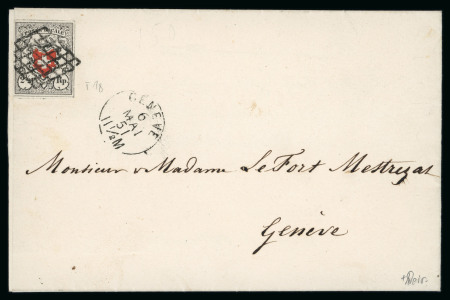 Rp.
T 18
GENÈVE
6
MAI
51
11½M
Monsieur & Madame Le Fort Mestrezat
Genève